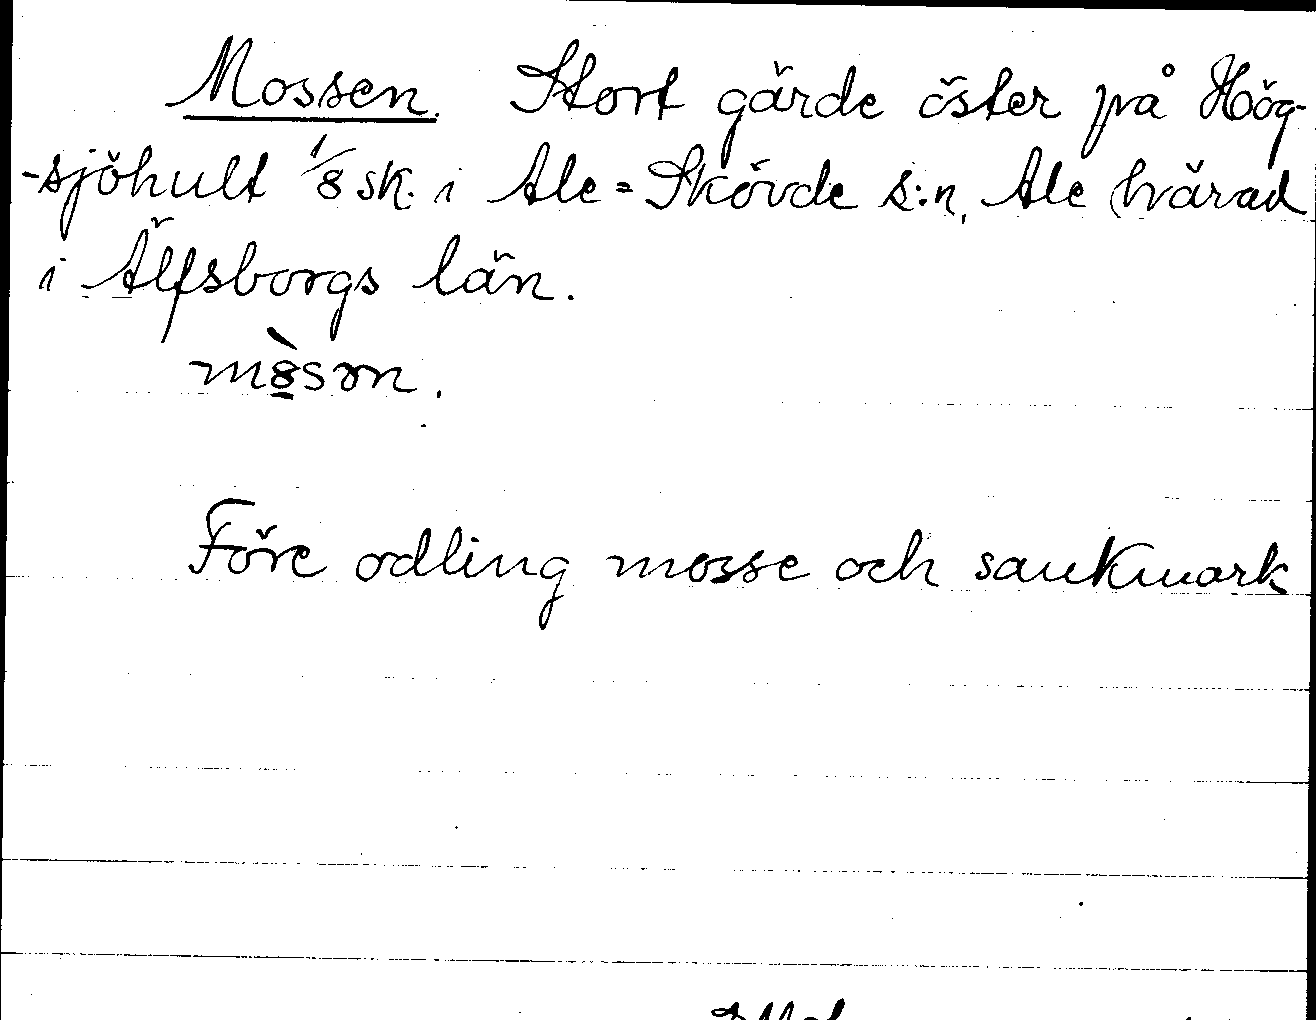 Mossen. Stort gärde öster på Hög-
-sjöhult 1/8 sk. i Ale=Skövde s:n, Ale härad
i Älfsborgs län.
Före odling mosse och sankmark